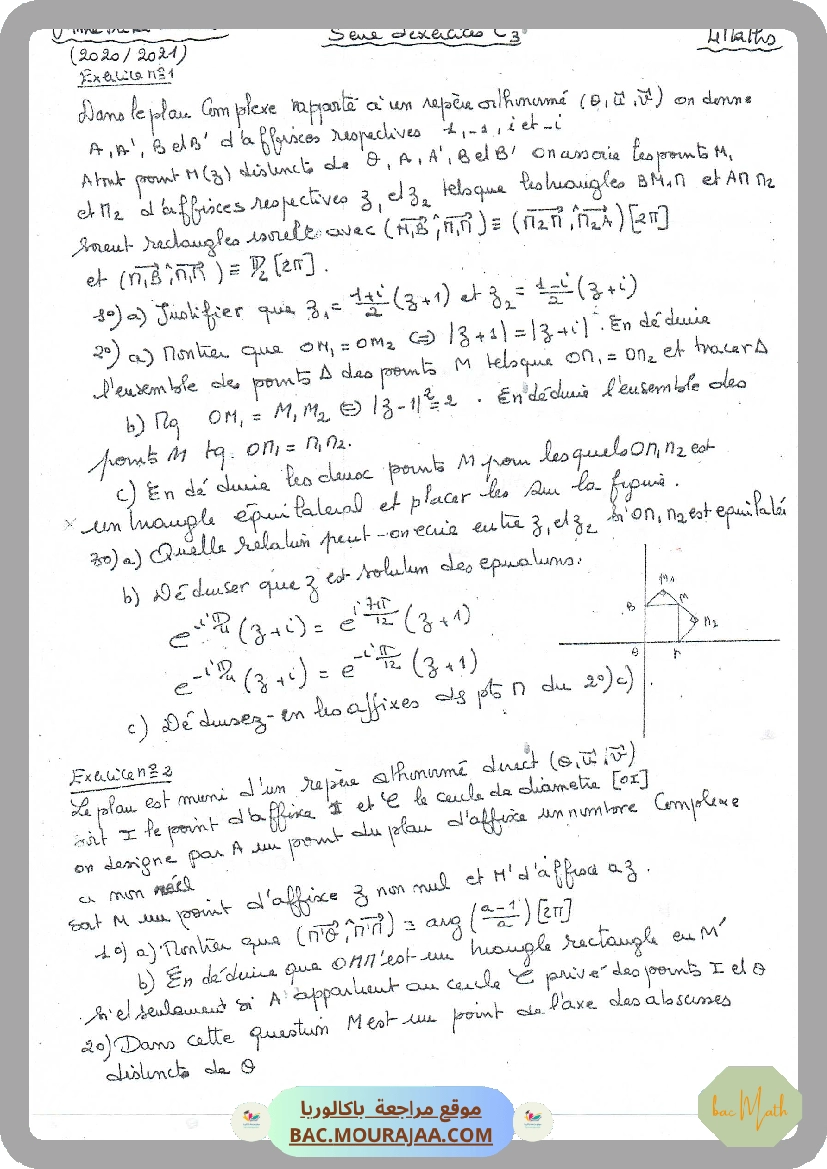 Serie d'exercices C3
4 Maths
(2020/2021)
Exercice n°1
Dans le plan Complexe rapporté à un repère orthonormé (O, u⃗, v⃗) on donne
A, A', B et B' d'affixes respectives 1, -1, i et -i
A tout point M(z) distincts de O, A, A', B et B' on associe les points M1
et M2 d'affixes respectives z1 et z2 tels que les triangles BM1M et AM M2
soient rectangles isocèle avec (M1B^, M1M) ≡ (M2M^, M2A) [2π]
et (M1B^, M1M) ≡ π/2 [2π].
1°) a) Justifier que z1 = (1+i)/2 (z+1) et z2 = (1-i)/2 (z+i)
2°) a) Montrer que OM1 = OM2 ⇔ |z+1| = |z+i|. En déduire
l'ensemble des points Δ des points M tels que OM1 = OM2 et tracer Δ
b) Mq OM1 = M1M2 ⇔ |z-1|² = 2. En déduire l'ensemble des
points M tq. OM1 = M1M2.
c) En déduire les deux points M pour lesquels OM1M2 est
un triangle équilateral et placer les sur la figure.
3°) a) Quelle relation peut-on ecrire entre z1 et z2 si OM1M2 est equilatéral
b) Déduiser que z est solution des equations:
e^(-iπ/4) (z+i) = e^(i7π/12) (z+1)
e^(-iπ/4) (z+i) = e^(-iπ/12) (z+1)
c) Déduisez-en les affixes des pts M du 2°)c)
M1
B
M
M2
O
A
Exercice n°2
Le plan est muni d'un repère othonormé direct (O, u⃗, v⃗)
soit I le point d'affixe 1 et C le cercle de diametre [OI]
on designe par A un point du plan d'affixe un nombre Complexe
a non réel
Soit M un point d'affixe z non nul et M' d'affixe az.
1°) a) Montrer que (M'O^, M'M) ≡ arg((a-1)/a) [2π]
b) En déduire que OMM' est un triangle rectangle en M'
si et seulement si A appartient au cercle C privé des points I et O
2°) Dans cette question M est un point de l'axe des abscisses
distincts de O
موقع مراجعة باكالوريا
BAC.MOURAJAA.COM
bac Math